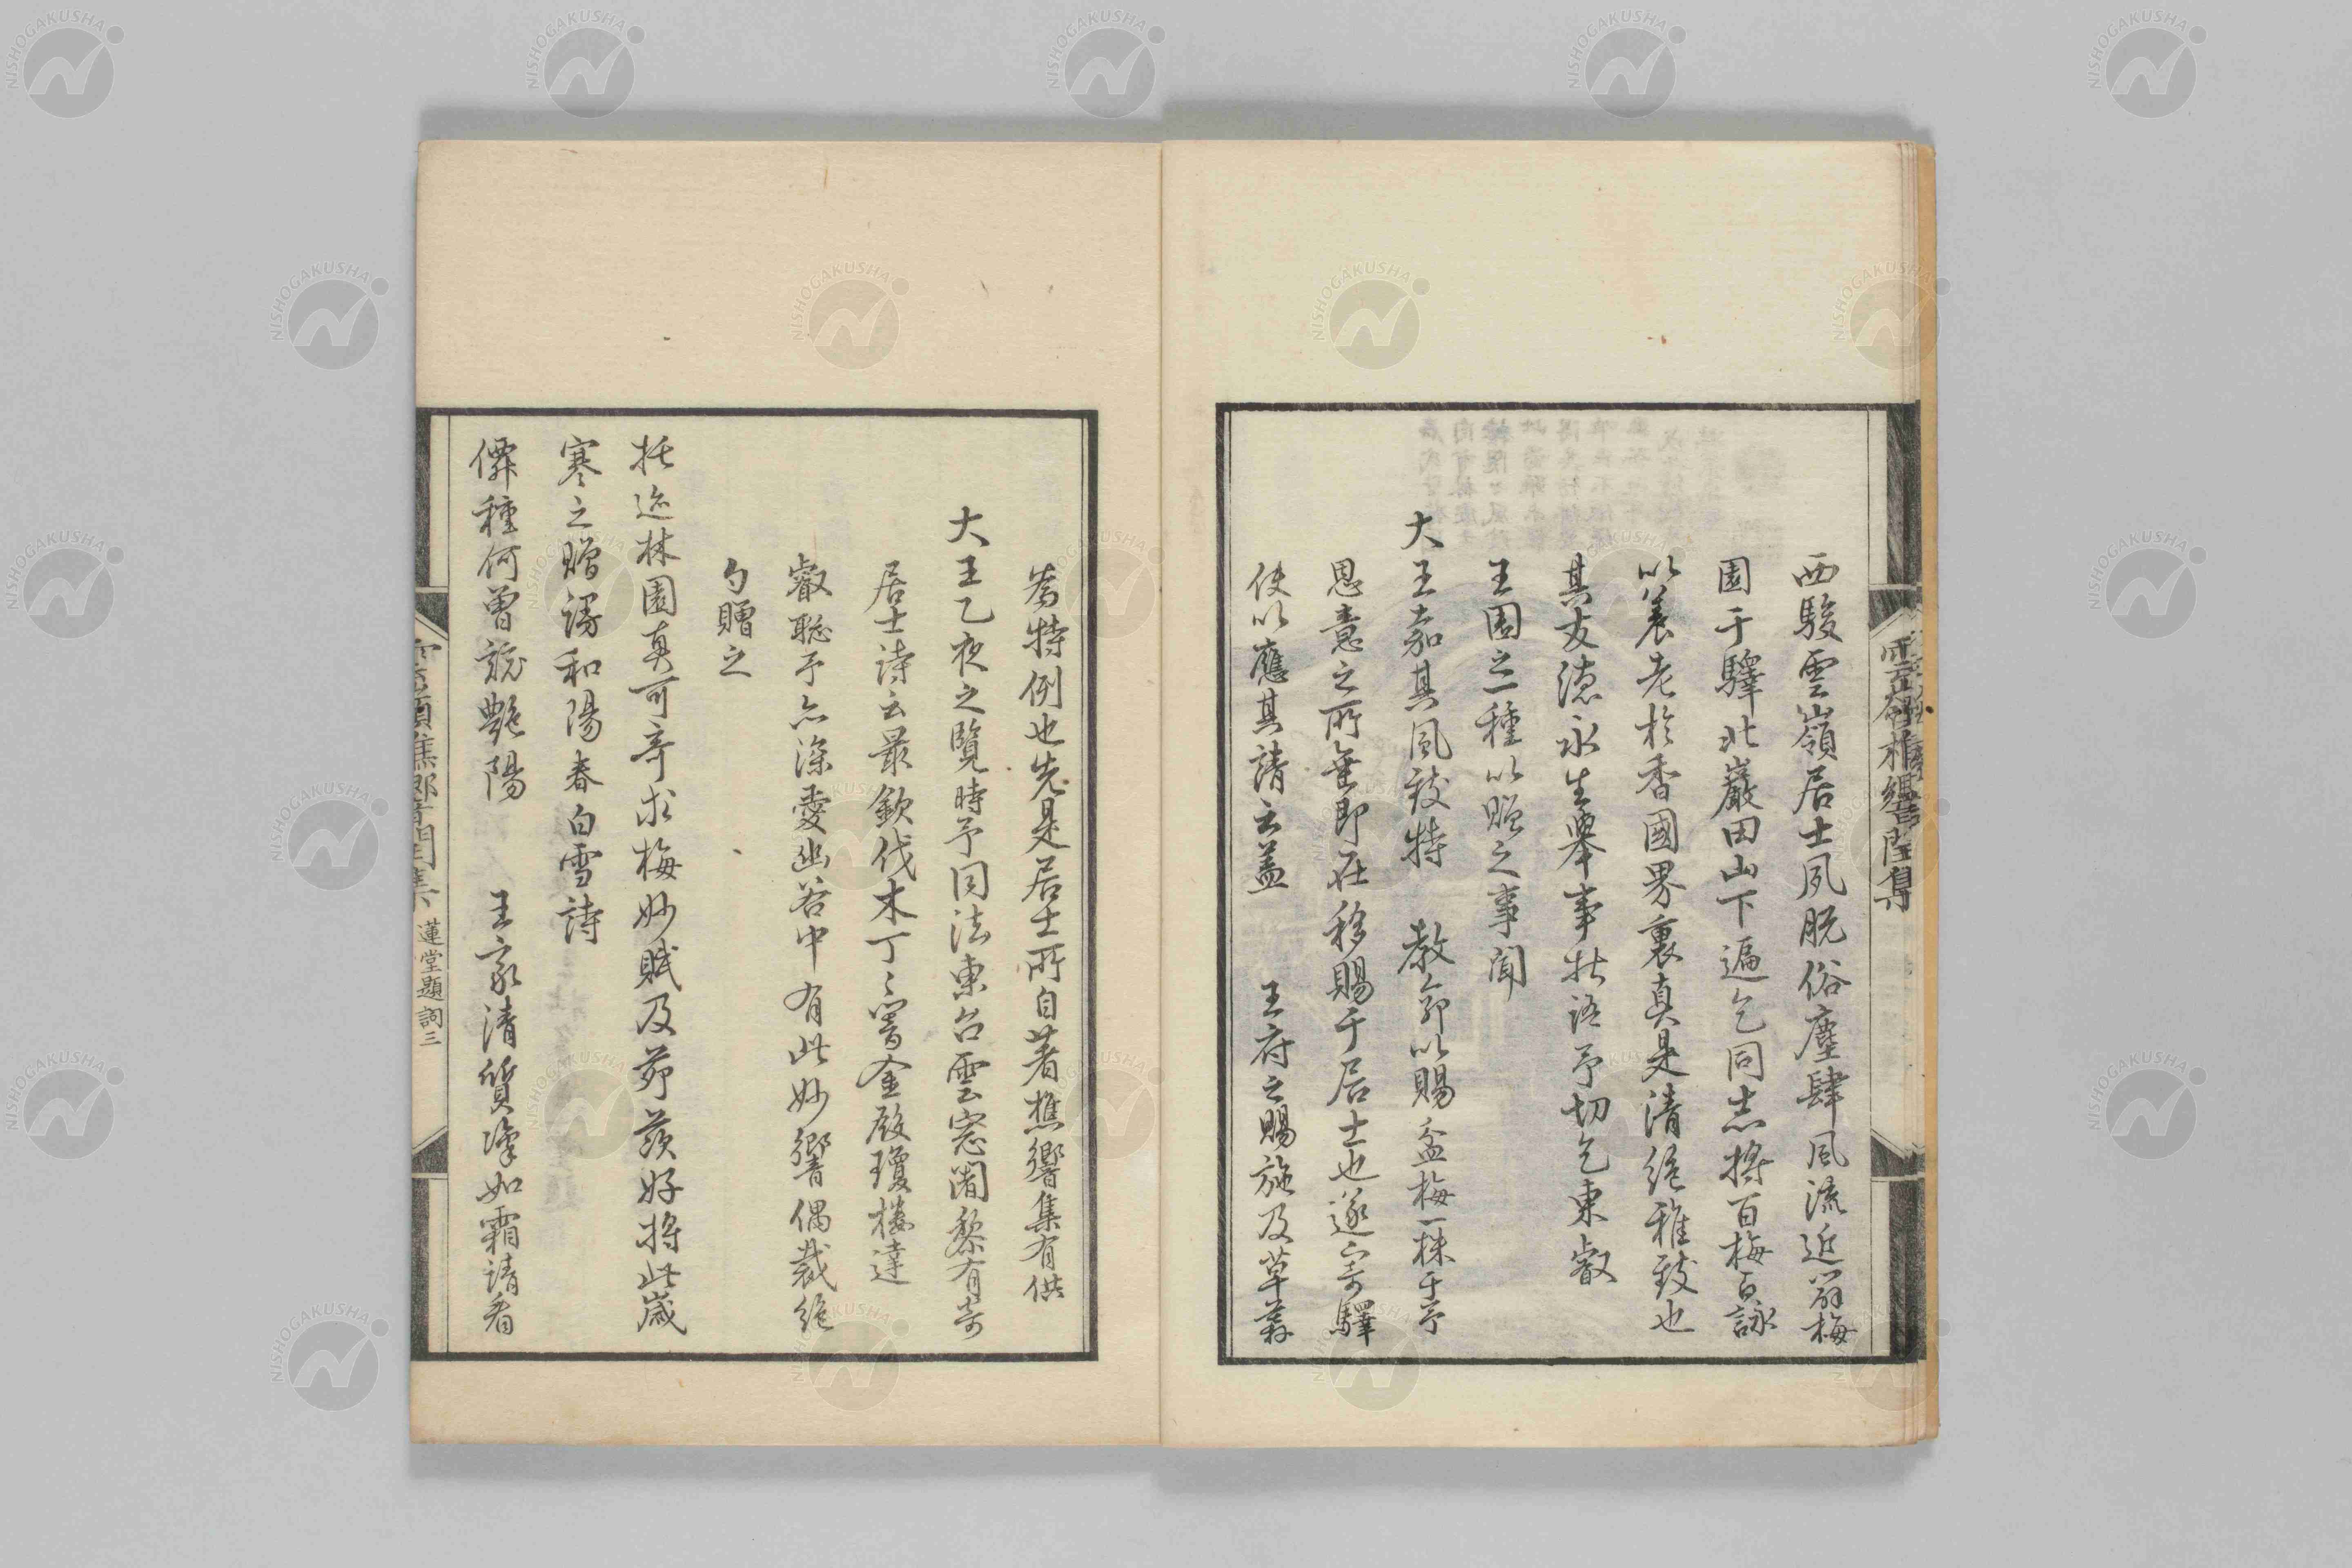 西駿雲嶺居士夙脱俗塵肆風流近闢梅
園于驛北巖田山下遍乞同志將百梅百詠
以養老於香國界裏真是清絶雅致也
其友徳永生舉事状語予切乞東叡
王園之一種以贈之事聞
大王嘉其風致特 教命以賜盆梅一株于予
恩意之所垂即在移賜于居士也遂寄驛
使以應其請云蓋 王府之賜施及草莽
為特例也先是居士所自著樵響集有供
大王乙夜之覽時予同法東台雲窓闍黎有寄
居士詩云最欽伐木丁々響金殿瓊樓達
叡聡予亦深愛幽谷中有此妙響偶裁絶
句贈之
托迹林園真可奇求梅妙賦及茆茨好將此歳
寒之贈謬和陽春白雪詩
僊種何曽競艶陽 王家清質潔如霜請看
蓮堂題詞三
NISHOGAKUSHA